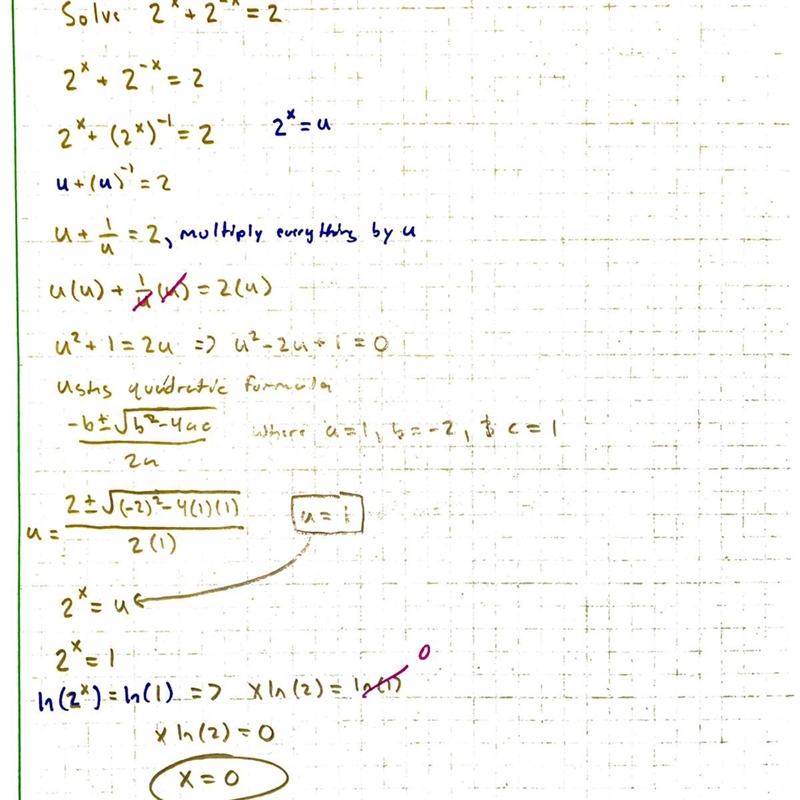 Solve 2^x + 2^-x = 2
2^x + 2^-x = 2
2^x + (2^x)^-1 = 2   2^x = u
u + (u)^-1 = 2
u + 1/u = 2, multiply everything by u
u(u) + 1/u (u) = 2(u)
u^2 + 1 = 2u => u^2 - 2u + 1 = 0
using quadratic formula
-b ± √(b^2 - 4ac) / 2a   where a = 1, b = -2, & c = 1
u = 2 ± √((-2)^2 - 4(1)(1)) / 2(1)   u = 1
2^x = u
2^x = 1
0
ln(2^x) = ln(1) => x ln(2) = ln(1)
x ln(2) = 0
x = 0